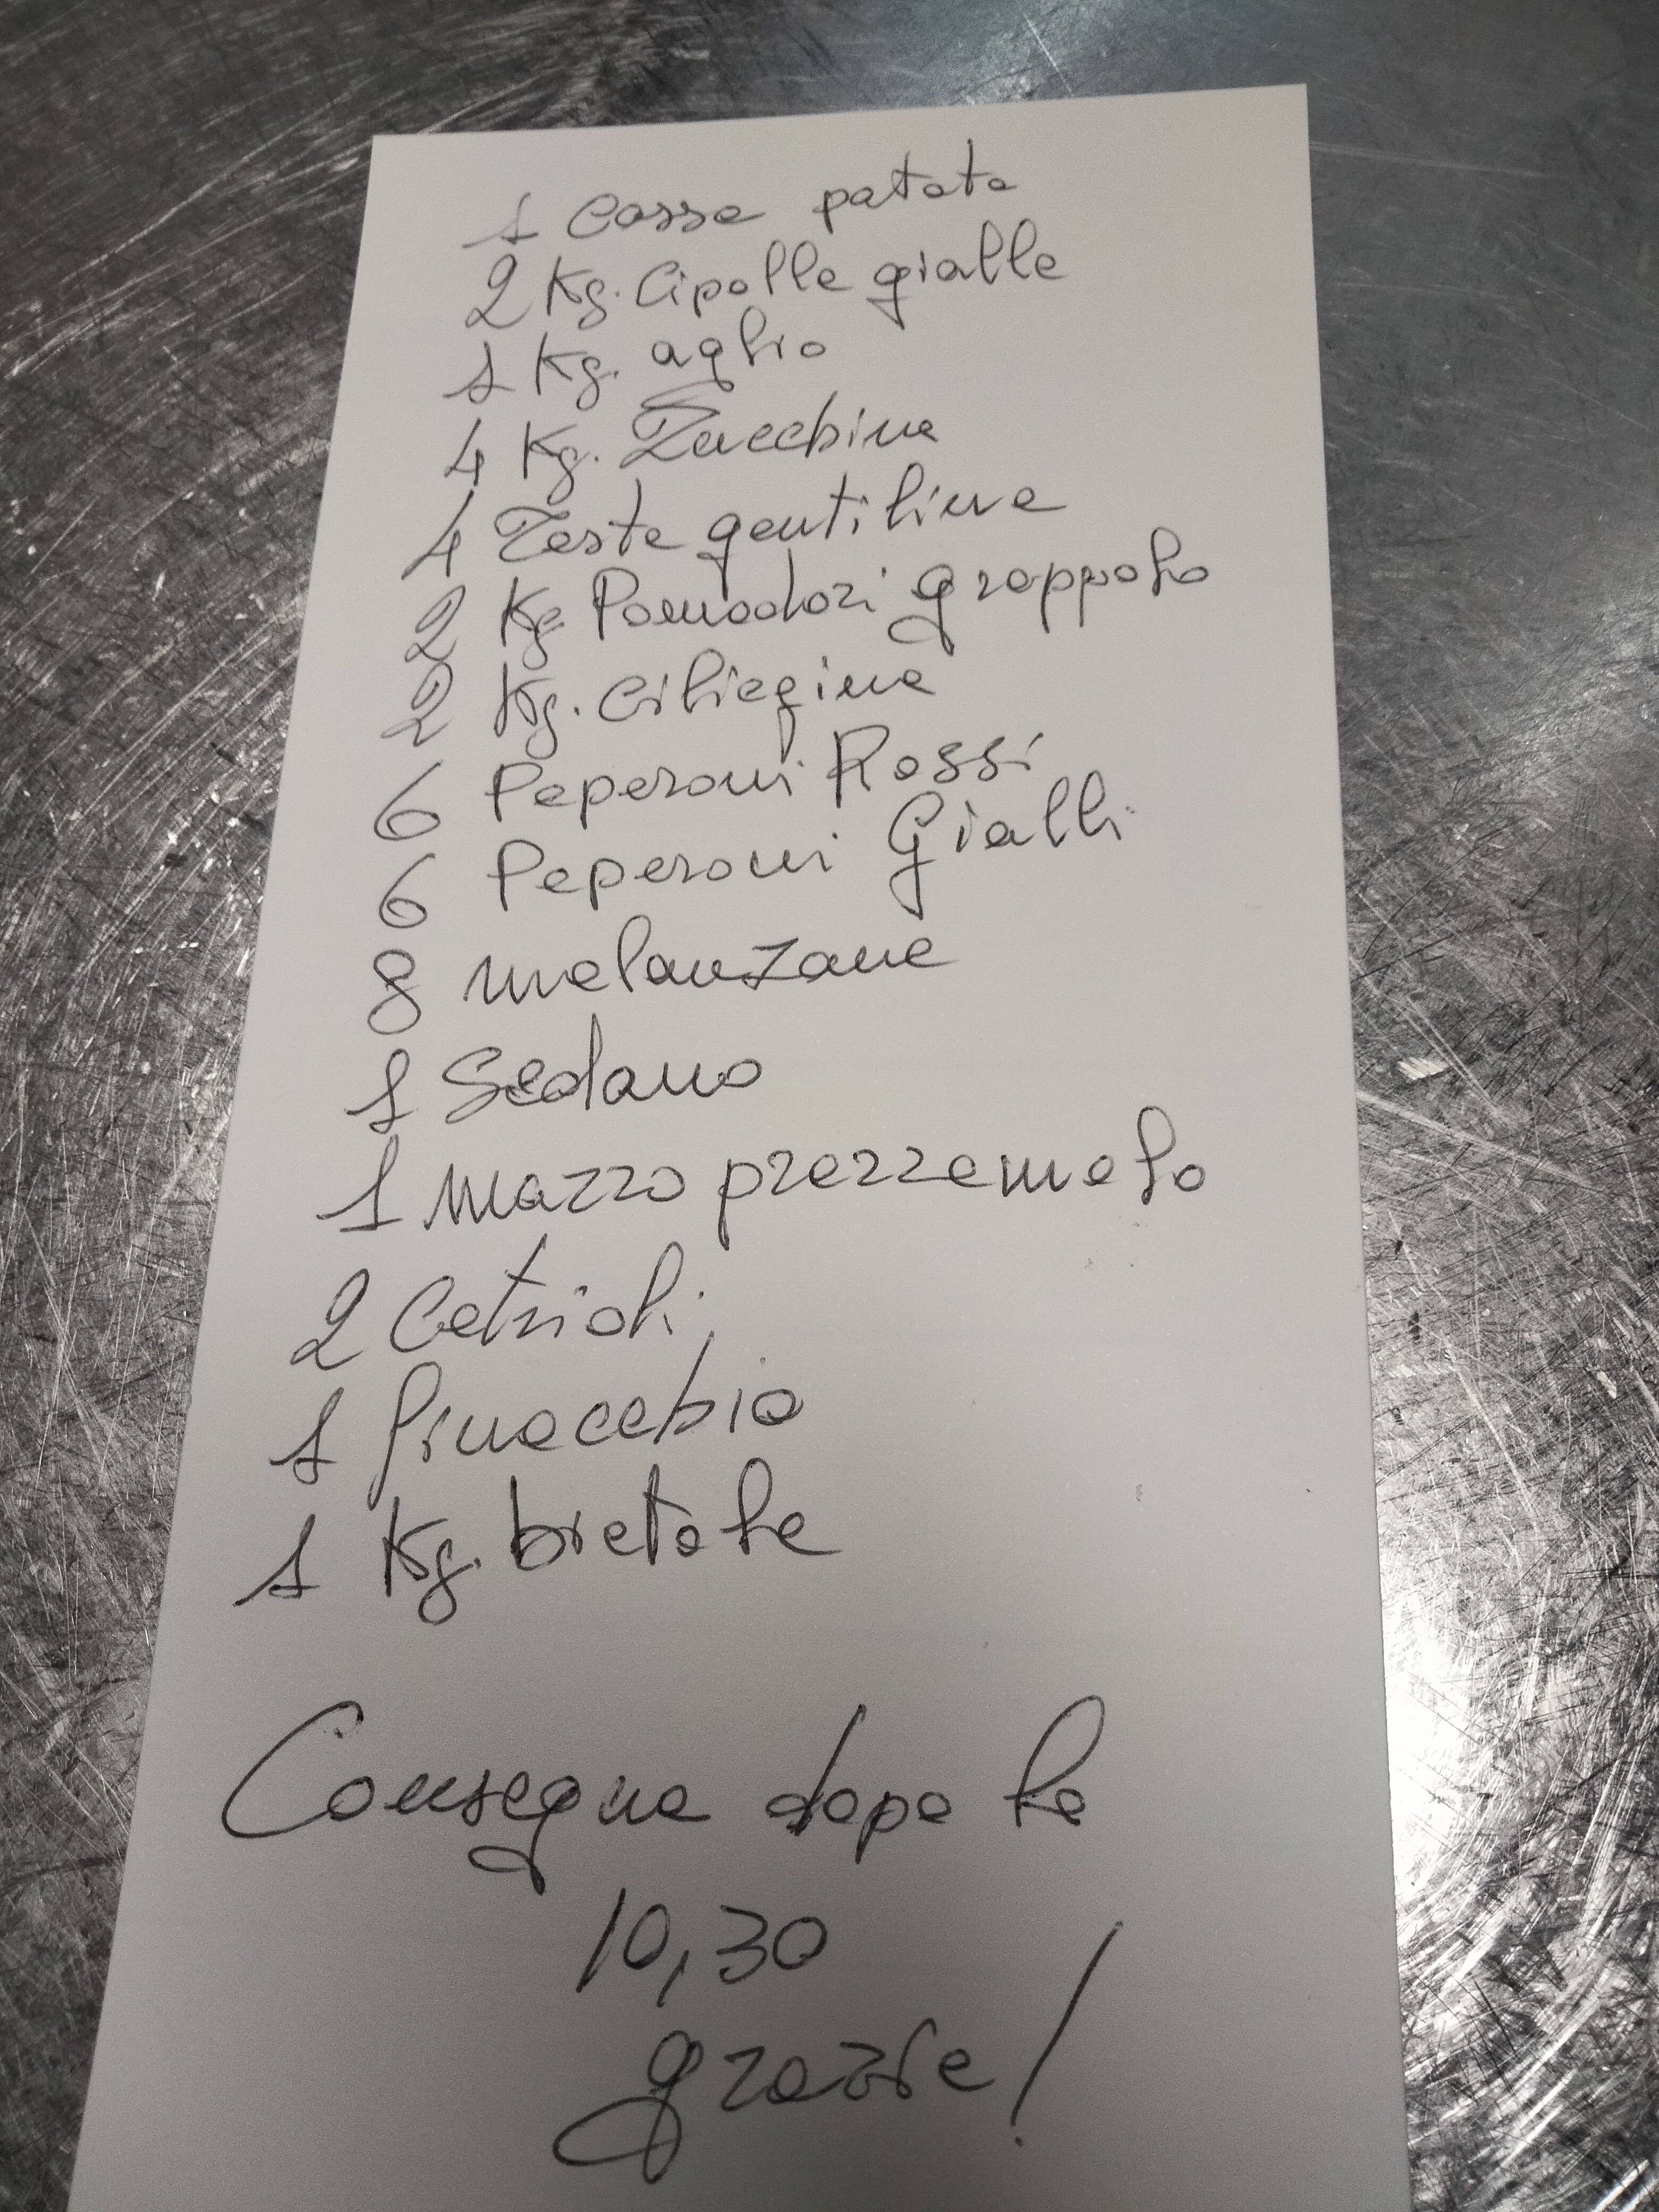 1 Cassa patate
2 Kg. Cipolle gialle
1 Kg. aglio
4 Kg. Zucchine
4 Teste gentilina
2 Kg Pomodori grappolo
2 Kg. ciliegine
6 Peperoni Rossi
6 Peperoni Gialli
8 melanzane
1 Sedano
1 mazzo prezzemolo
2 Cetrioli
1 finocchio
1 Kg. bietole
Consegna dopo le
10,30
grazie!